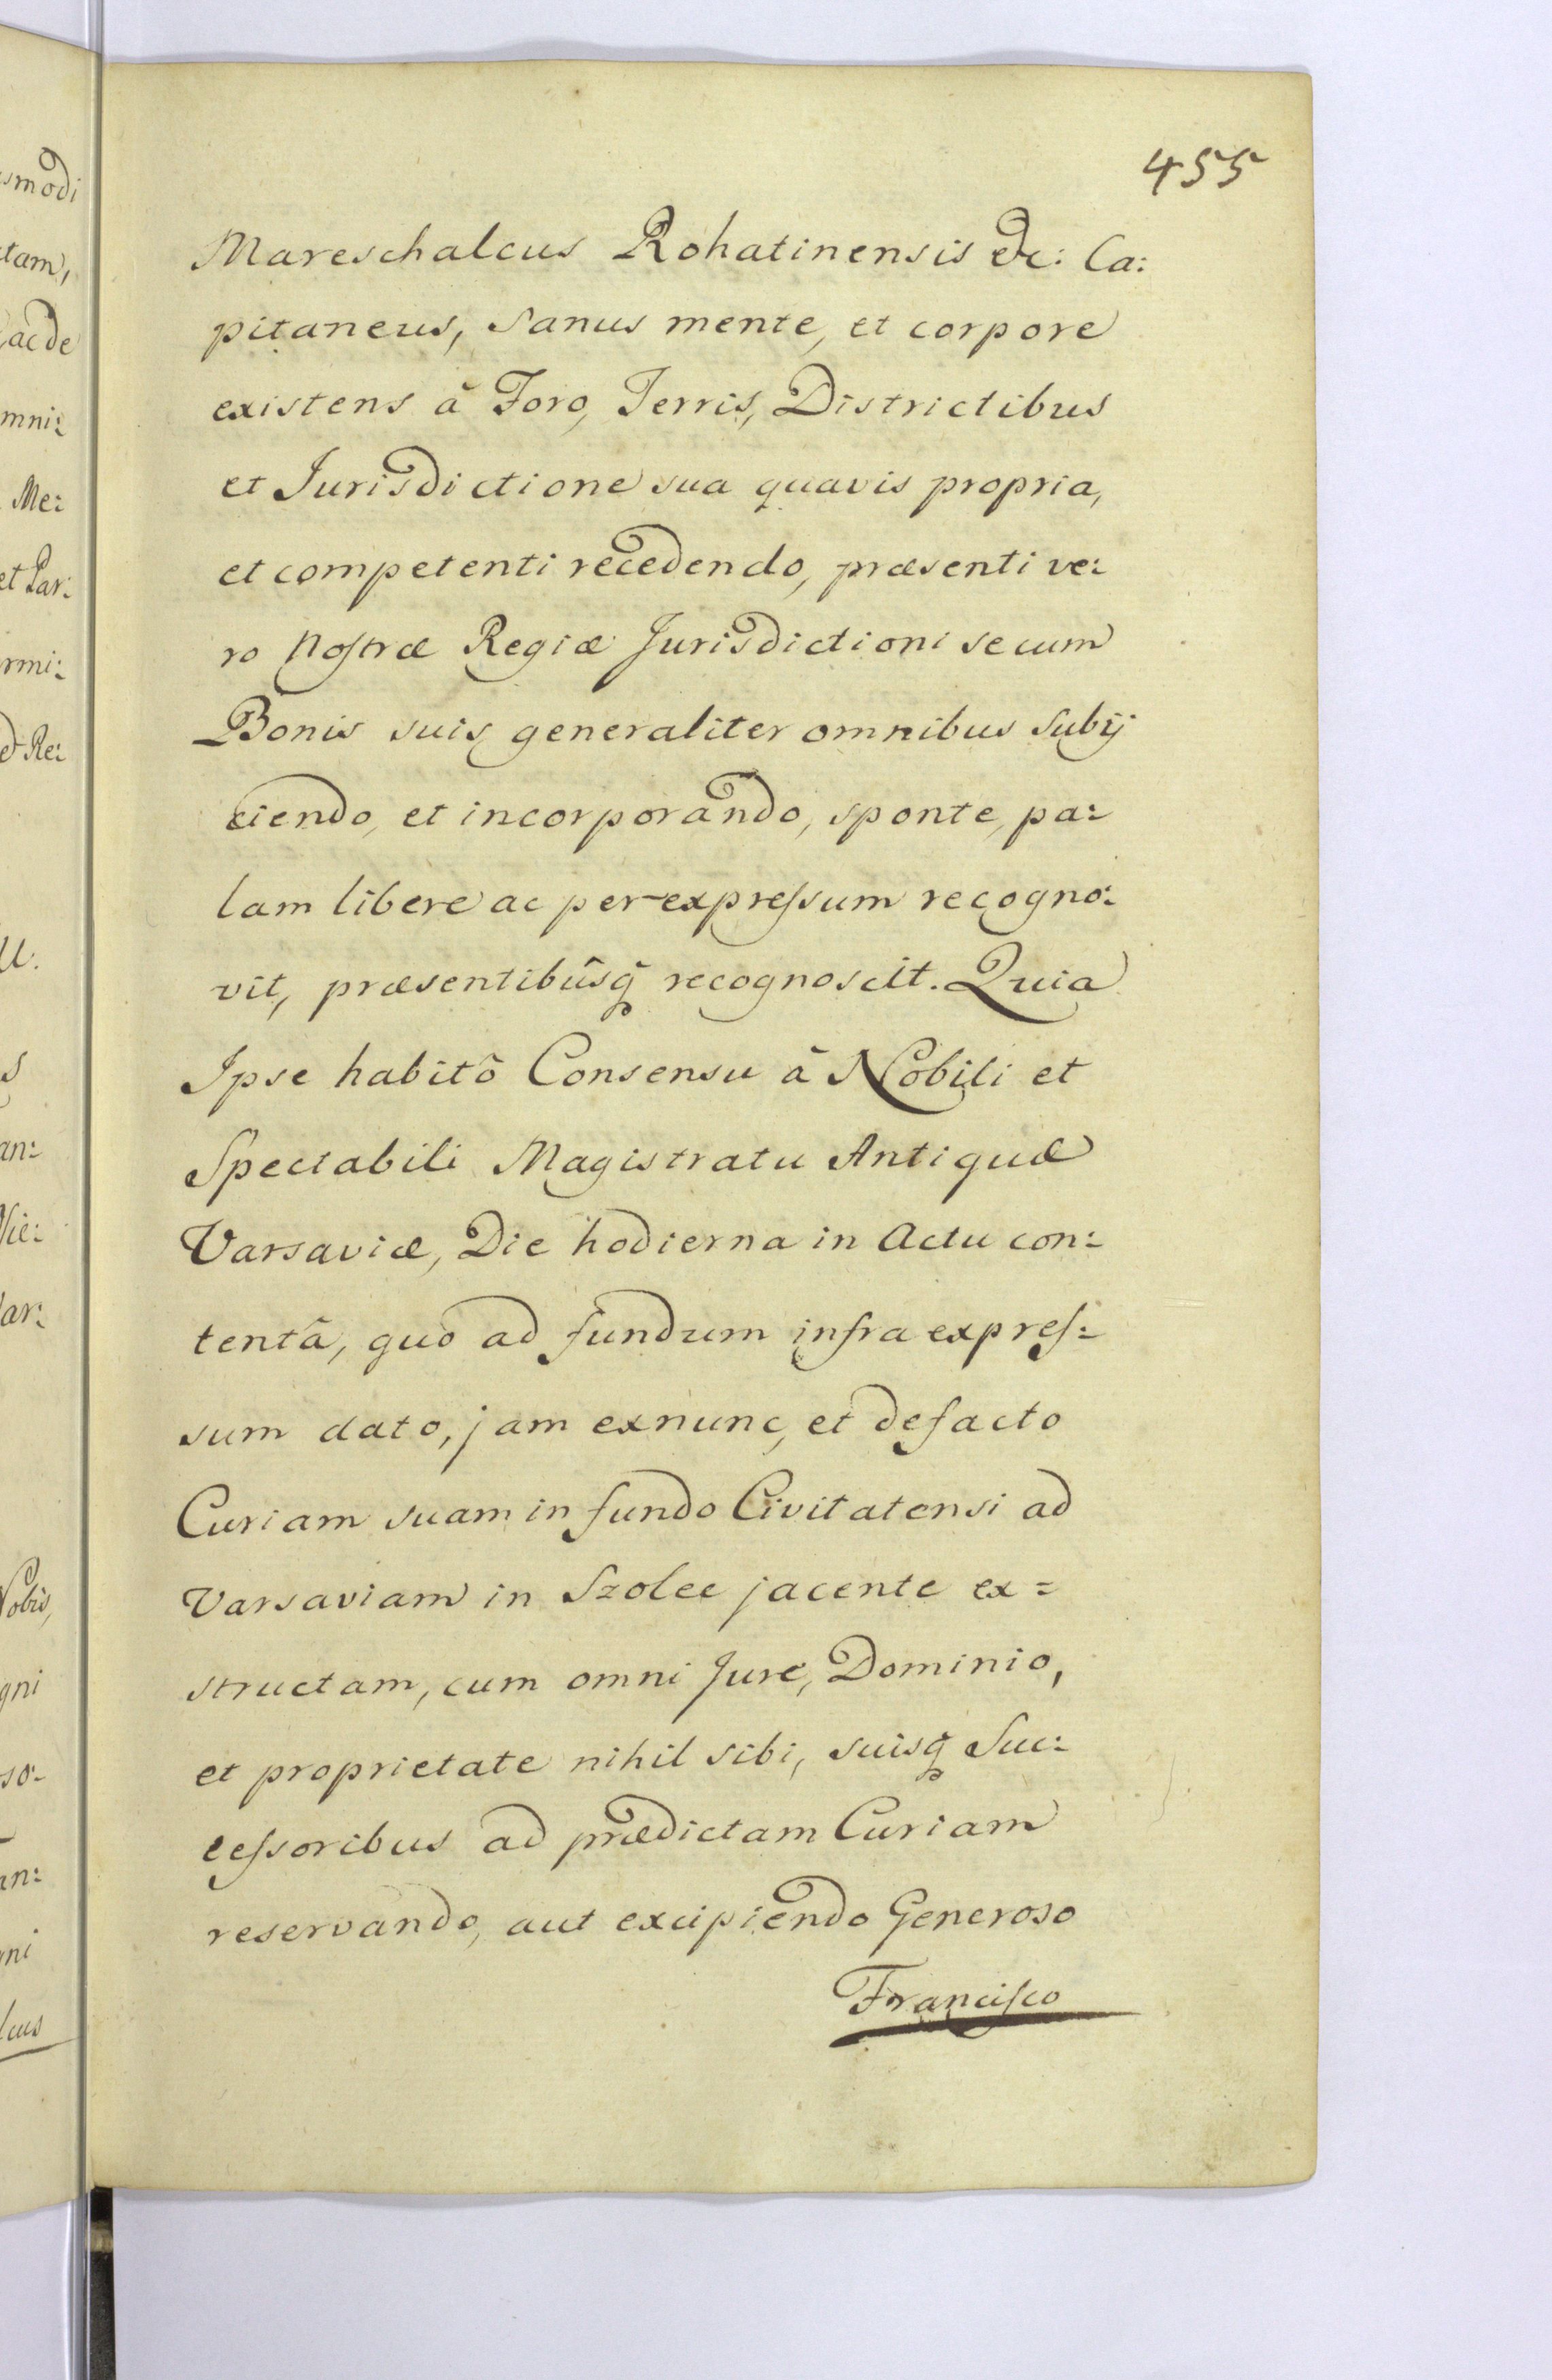 455
Mareschalcus Rohatinensis &c: Ca:
pitaneus, sanus mente, et corpore
existens â Foro, Terris, Districtibus
et Jurisdictione sua quavis propria,
et competenti recedendo, præsenti ve:
ro Nostræ Regiæ Jurisdictioni se cum
Bonis suis generaliter omnibus subij
ciendo, et incorporando, sponte, pa:
lam libere ac per expressum recogno:
vit, præsentibûsq̃ recognoscit. Quia
Ipse habitô Consensu â Nobili et
Spectabili Magistratu Antiquæ
Varsaviæ, Die hodierna in Actu con:
tentâ, quo ad fundum infra expres:
sum dato, jam exnunc, et defacto
Curiam suam in fundo Civitatensi ad
Varsaviam in Szolec jacente ex=
structam, cum omni Jure, Dominio,
et proprietate nihil sibi, suisq̃ Suc:
cessoribus ad prædictam Curiam
reservando, aut excipiendo Generoso
Francisco
smodi
tam,
ac de
mni:
Me:
et Par:
rmi:
d Re:
an:
ar:
Nobis,
gni
so:
an:
ni
lcus